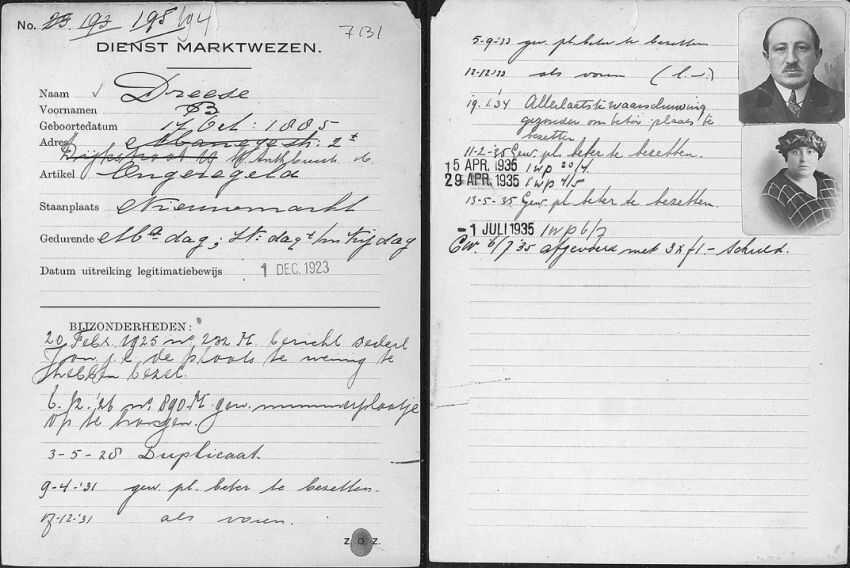 No. 23. 193 198 194
7131
DIENST MARKTWEZEN.
Naam Dreese
Voornamen B
Geboortedatum 14 Oct: 1885
Adres 2e
Artikel Ongeregeld
Staanplaats Nieuwmarkt
Gedurende Ma dag; dagt/m Vrijdag
Datum uitreiking legitimatiebewijs 1 DEC. 1923
BIJZONDERHEDEN:
20 Febr. 1925 no. 232 M. bericht sedert
Jan j.l. de plaats te weinig te
hebben bezet.
6. '26 no. 890 M. gew. nummerplaatje
op te hangen.
3-5-28 Duplicaat.
9-4-'31 gew. pl. beter te bezetten.
-12-'31 als voren.
Z. O. Z.
5-9-33 gew. pl. beter te bezetten
12-12-33 als voren
19.1.'34 Allerlaatste waarschuwing
gezonden om beter plaats te
bezetten
11-2-'35 Gew. pl. beter te bezetten.
15 APR. 1935 1 wp 20/4.
29 APR. 1935 1 wp 4/5
13-5-'35 Gew. pl. beter te bezetten.
-1 JULI 1935 1 wp 6/7
6/7 '35 afgevoerd met 3 x f1.- schuld.